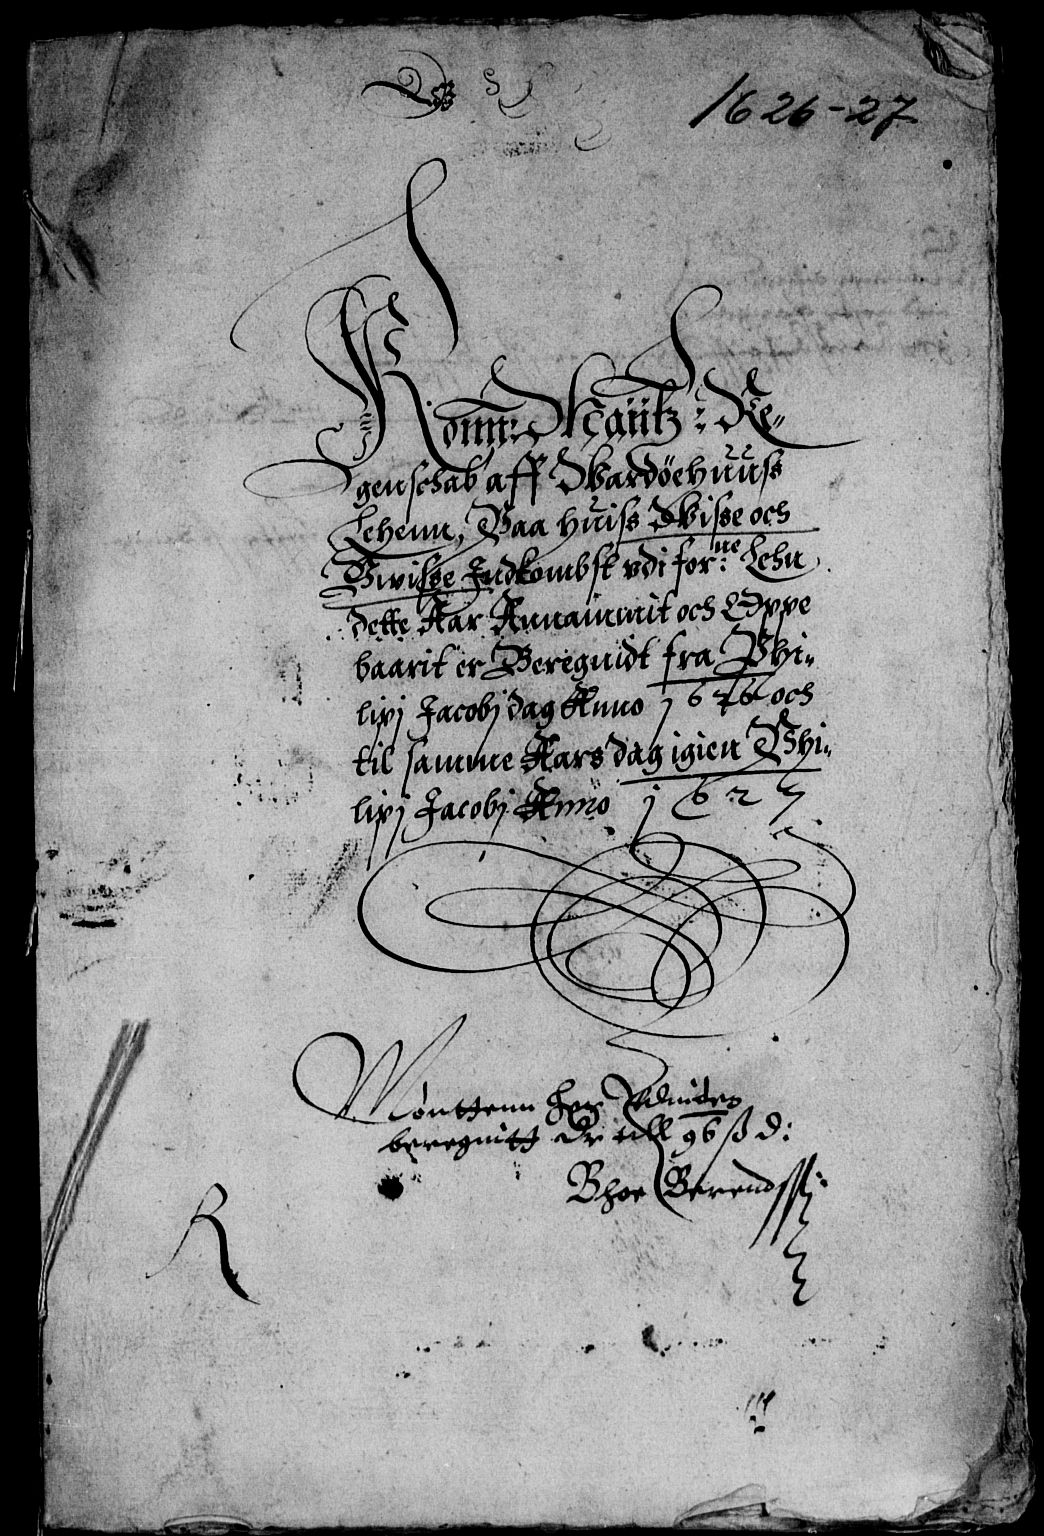 1626-27
Konn: Maÿtz: Re-
genschab aff Wardøehuuss
Lehenn, Paa huiss Wisse och
Vwisse Indkombst vdi for:ne Lehn
dette Aar Annammit och Oppe
baarit er Beregnidt fra Phi-
lipj Jacobj dag Anno 1626 och
til samme Aars dag igien Phi-
lipj Jacobj Anno 1627
Mønttenn her Vdinden
beregnitt Er till 96 ß d:
Berendss
R